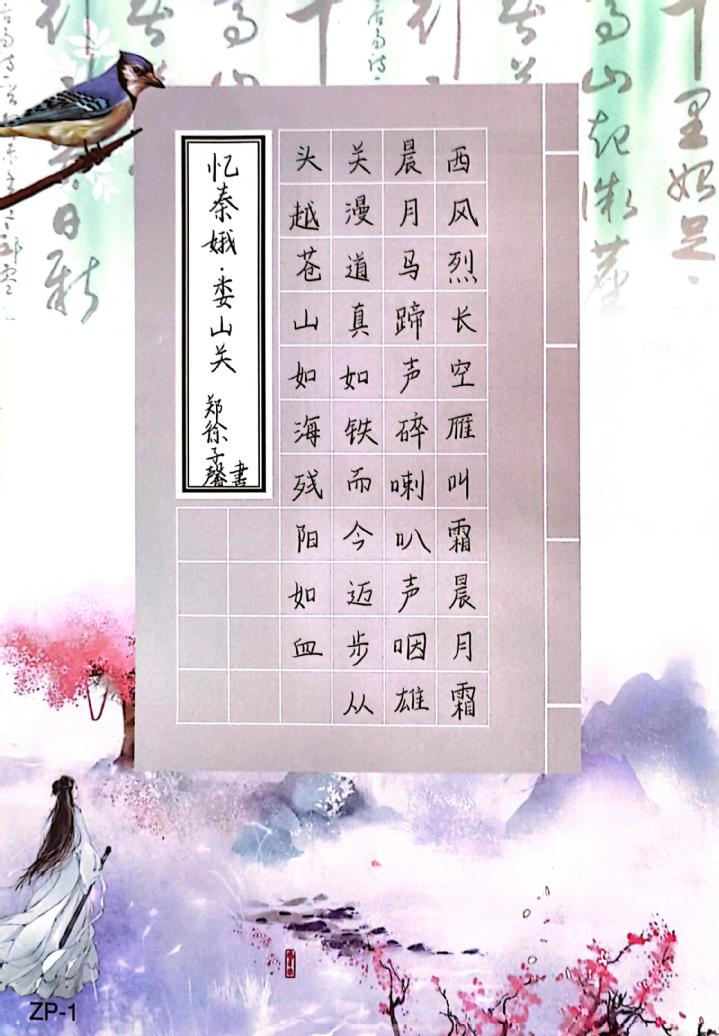 忆秦娥·娄山关
郑徐子馨書
西风烈长空雁叫霜晨月霜
晨月马蹄声碎喇叭声咽雄
关漫道真如铁而今迈步从
头越苍山如海残阳如血
ZP-1